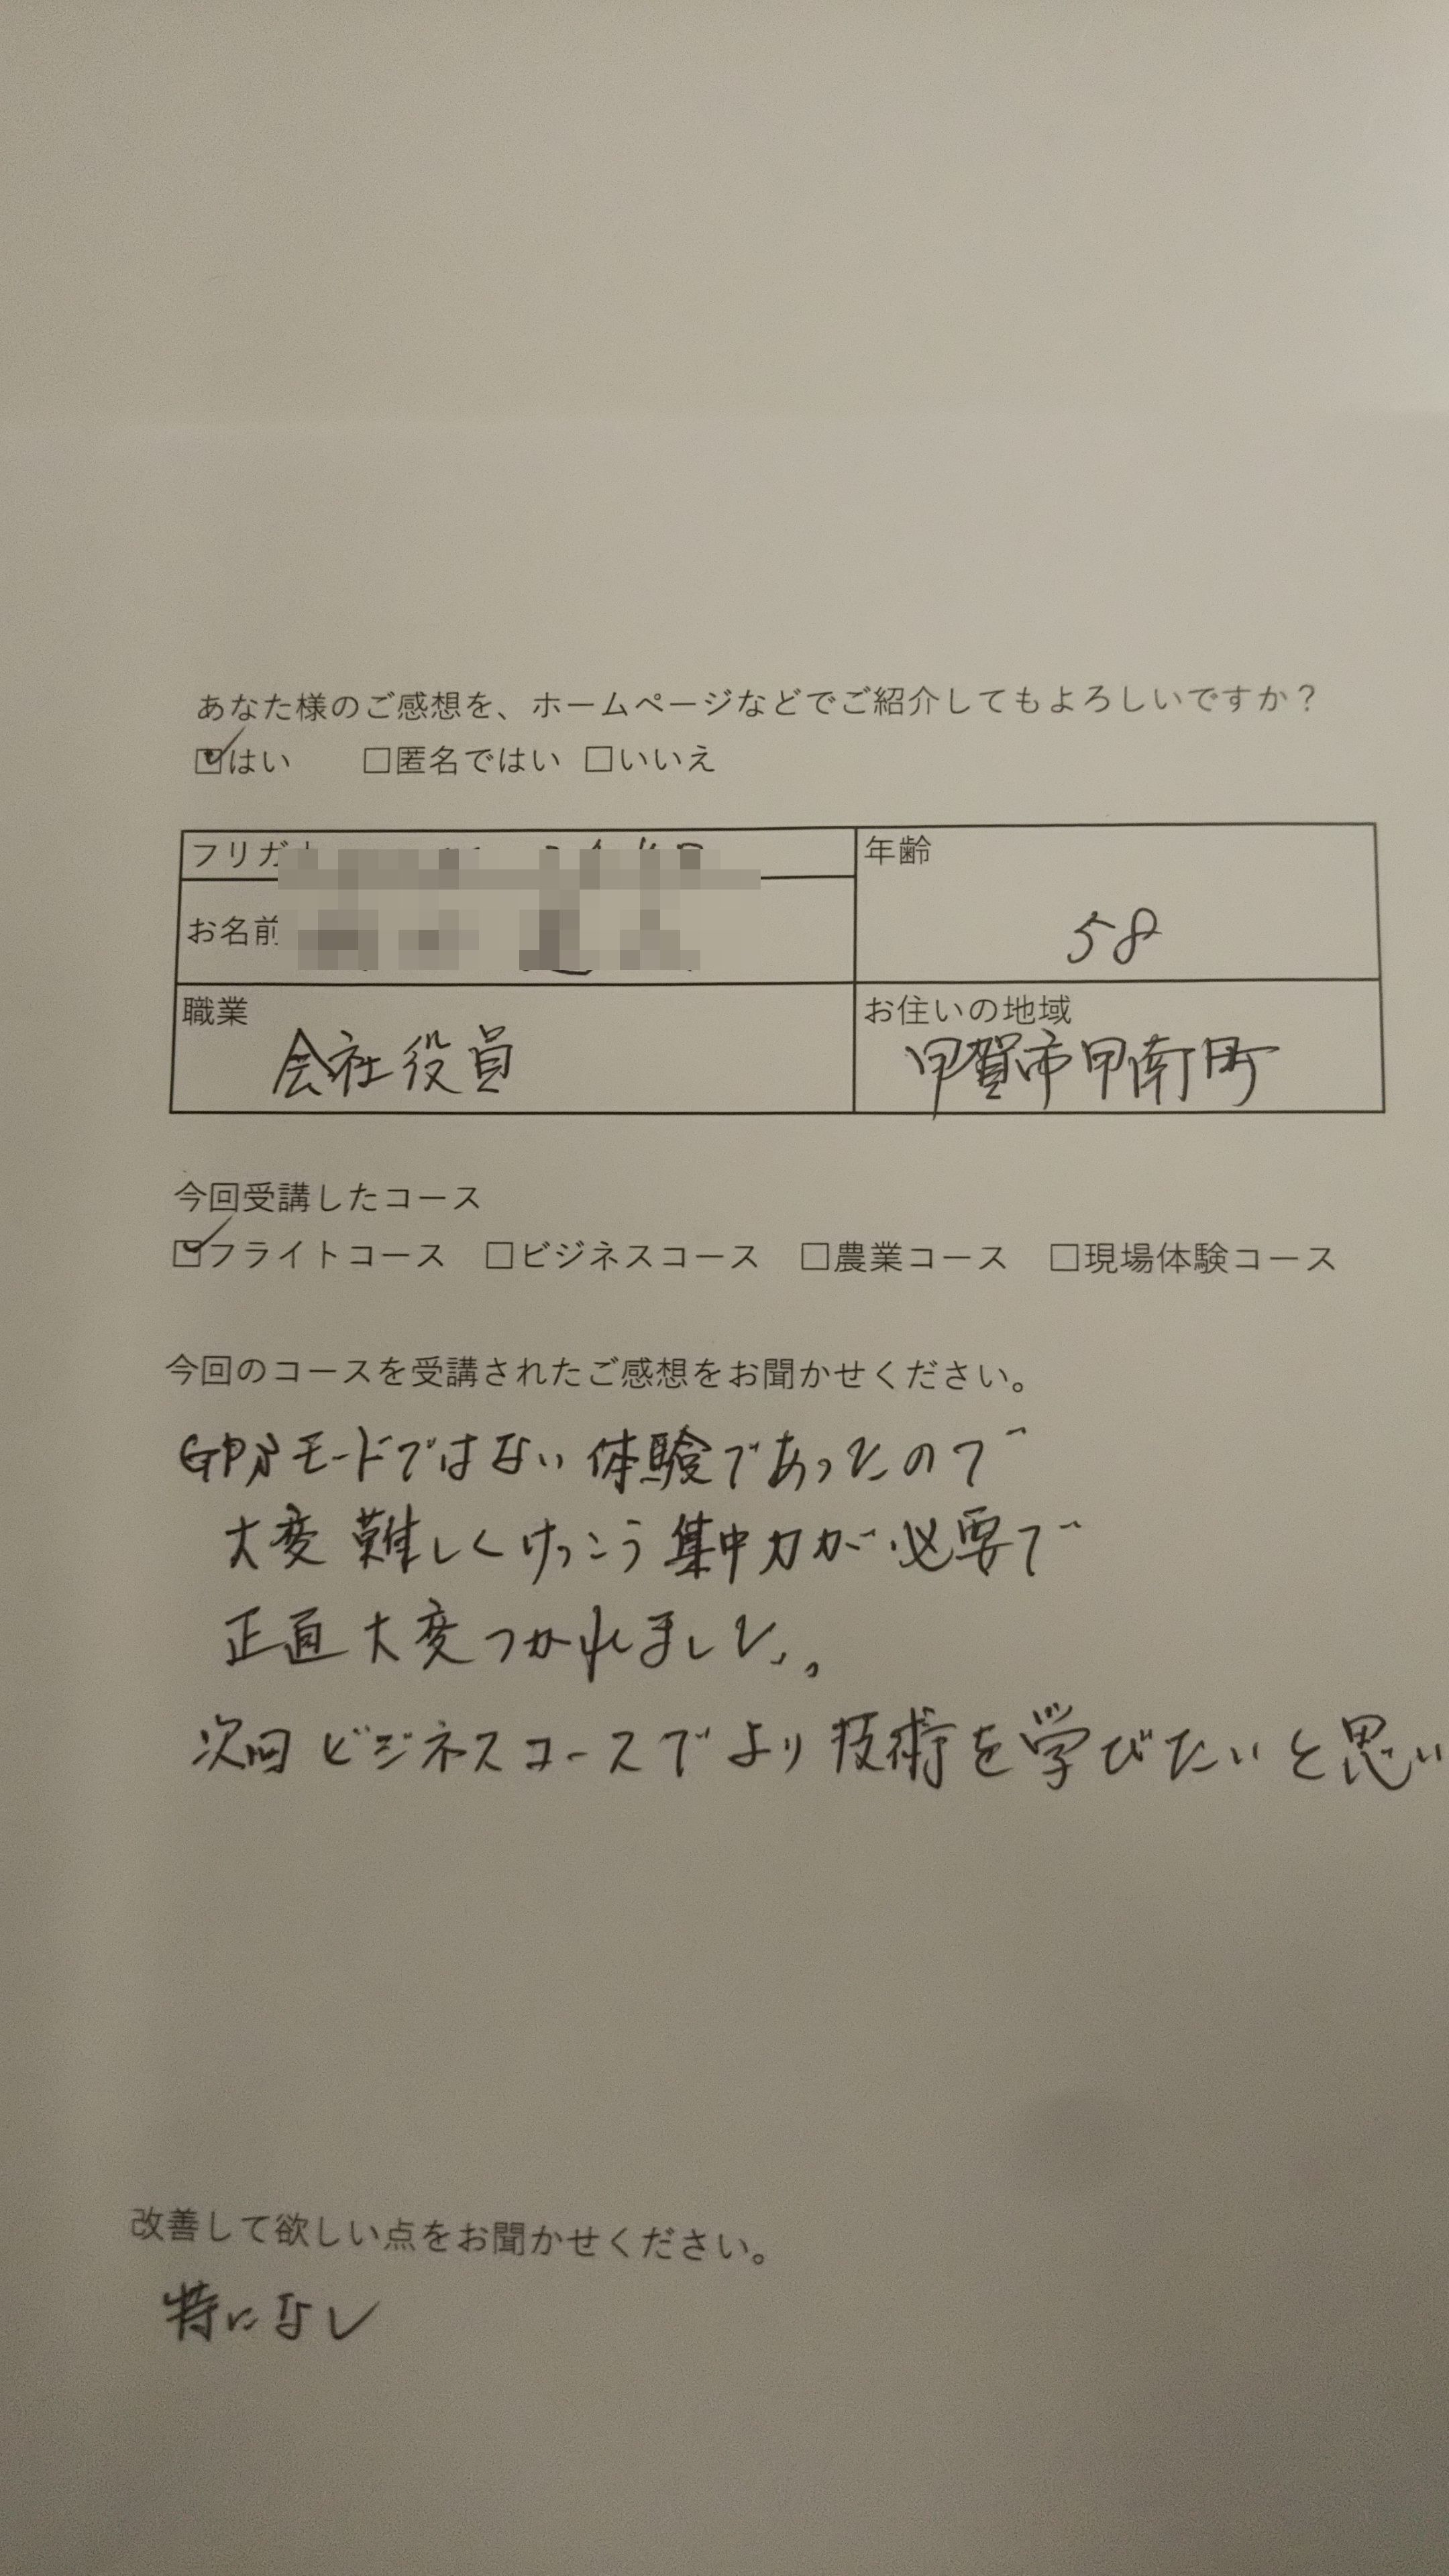 あなた様のご感想を、ホームページなどでご紹介してもよろしいですか？
☑はい □匿名ではい □いいえ
フリガナ
年齢
お名前
58
職業
お住いの地域
会社役員
甲賀市甲南町
今回受講したコース
☑フライトコース □ビジネスコース □農業コース □現場体験コース
今回のコースを受講されたご感想をお聞かせください。
GPSモードではない体験であったので
大変難しくけっこう集中力が必要で
正直大変つかれました。
次回ビジネスコースでより技術を学びたいと思い
改善して欲しい点をお聞かせください。
特になし